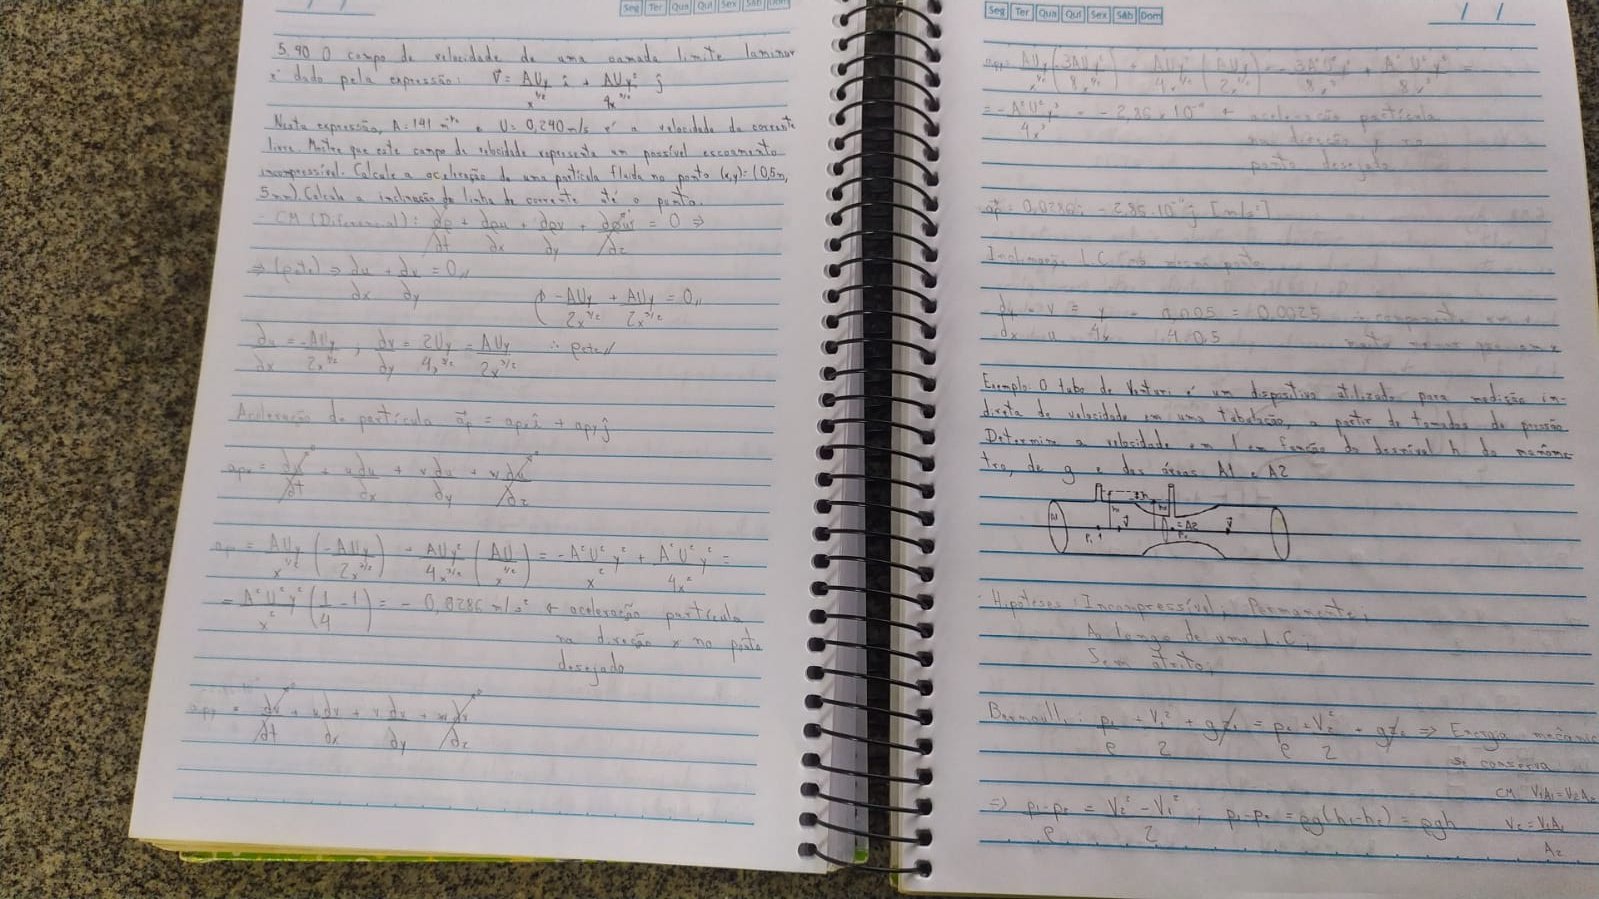 Seg Ter Qua Qui Sex Sáb Dom
5.40 O campo de velocidade de uma camada limite laminar
é dado pela expressão: V⃗ = AUy/x^(1/2) î + AUy²/4x^(3/2) ĵ
Nesta expressão, A = 141 m^(-1/2) e U = 0,240 m/s é a velocidade da corrente
livre. Mostre que este campo de velocidade representa um possível escoamento
incompressível. Calcule a aceleração de uma partícula fluida no ponto (x,y) = (0,5m,
5mm). Calcule a inclinação da linha de corrente até o ponto.
- CM (Diferencial): ∂ρ/∂t + ∂ρu/∂x + ∂ρv/∂y + ∂ρw/∂z = 0 ⇒
⇒ (ρcte) ⇒ ∂u/∂x + ∂v/∂y = 0,,
-AUy/2x^(3/2) + AUy/2x^(3/2) = 0,,
∂u/∂x = -AUy/2x^(3/2) , ∂v/∂y = 2Uy/4x^(3/2) = AUy/2x^(3/2) ∴ ρcte//
Aceleração da partícula a⃗p = apx î + apy ĵ
apx = ∂u/∂t + u∂u/∂x + v∂u/∂y + w∂u/∂z
apx = AUy/x^(1/2) (-AUy/2x^(3/2)) + AUy²/4x^(3/2) (AU/x^(1/2)) = -A²U²y²/x² + A²U²y²/4x² =
= A²U²y²/x² (1/4 - 1) = - 0,0286 m/s² ← aceleração partícula
na direção x no ponto
desejado
apy = ∂v/∂t + u∂v/∂x + v∂v/∂y + w∂v/∂z
Seg Ter Qua Qui Sex Sáb Dom
/ /
apy = AUy/x^(1/2) (-3AUy²/8x^(5/2)) + AUy²/4x^(3/2) (AUy/2x^(3/2)) = -3A²U²y³/8x³ + A²U²y³/8x³ =
= -A²U²y³/4x³ = -2,86 × 10⁻⁴ ← aceleração partícula
na direção y no
ponto desejado
a⃗p = 0,0286î - 2,86.10⁻⁴ĵ [m/s²]
Inclinação L.C. no mesmo ponto
dy/dx = v/u = y/4x = 0,005/4.0,5 = 0,0025 ∴ componente em y
muito menor que em x
Exemplo: O tubo de Venturi é um dispositivo utilizado para medição in-
direta de velocidade em uma tubulação, a partir de tomadas de pressão
Determine a velocidade em 1 em função do desnível h do manôme-
tro, de g e das áreas A1 e A2
A1 P1 1 V⃗ h = A2 P2 V⃗
- Hipóteses: Incompressível; Permanente;
Ao longo de uma L.C.;
Sem atrito;
Bernoulli: p1/ρ + V1²/2 + gz1 = p2/ρ + V2²/2 + gz2 ⇒ Energia mecânic
se conserva
CM V1A1=V2A2
⇒ p1-p2/ρ = V2² - V1²/2 ; p1-p2 = ρg(h1-h2) = ρgh V2 = V1A1/A2